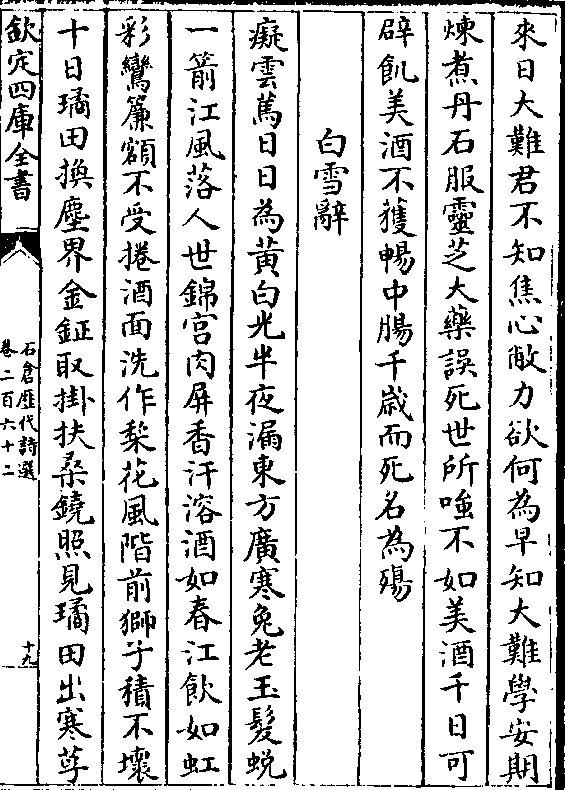 來日大難君不知焦心敝力欲何為早知大難學安期
煉煮丹石服靈芝大藥誤死世所嗤不如美酒千日可
辟飢美酒不獲暢中腸千歲而死名為殤
白雪辭
癡雲蔫日日為黃白光半夜漏東方廣寒兔老玉髮蛻
一箭江風落人世錦宮肉屏香汗溶酒如春江飲如虹
彩鸞簾額不受捲酒面洗作梨花風階前獅子積不壞
十日璚田換塵界金鉦取掛扶桑鐃照見璚田出寒荸
欽定四庫全書
石倉歷代詩選
卷二百六十二
十九